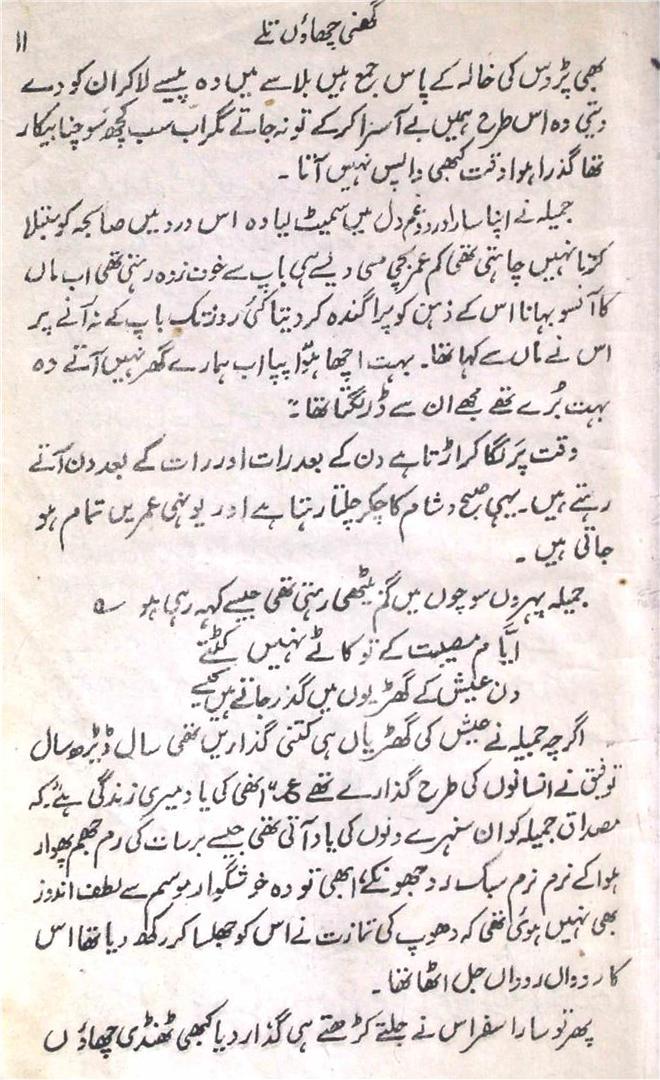 گھنی چھاؤں تلے
۱۱
بھی پڑوس کی خالہ کے پاس جمع ہیں بلا سے میں وہ پیسے لا کر ان کو دے
دیتی وہ اس طرح ہمیں بے آسرا کر کے تو نہ جاتے مگر اب سب کچھ سوچنا بیکار
تھا گذرا ہوا وقت کبھی واپس نہیں آتا ۔
جمیلہ نے اپنا سارا درد و غم دل میں سمیٹ لیا وہ اس درد میں صالحہ کو مبتلا
کرنا نہیں چاہتی تھی کم عمر بچی سی ویسے ہی باپ سے خوف زدہ رہتی تھی اب ماں
کا آنسو بہانا اس کے ذہن کو پراگندہ کر دیتا کئی روز تک باپ کے نہ آنے پر
اس نے ماں سے کہا تھا۔ بہت اچھا ہوا پپا اب ہمارے گھر نہیں آتے وہ
بہت بُرے تھے مجھے ان سے ڈر لگتا تھا"۔
وقت پَر لگا کر اڑتا ہے دن کے بعد رات اور رات کے بعد دن آتے
رہتے ہیں۔ یہی صبح و شام کا چکر چلتا رہتا ہے اور یونہی عمریں تمام ہو
جاتی ہیں ۔
جمیلہ پہروں سوچوں میں گم بیٹھی رہتی تھی جیسے کہہ رہی ہو ؎
ایّام مصیبت کے تو کاٹے نہیں کٹتے
دن عیش کے گھڑیوں میں گذر جاتے ہیں کیسے
اگرچہ جمیلہ نے عیش کی گھڑیاں ہی کتنی گذاریں تھی سال ڈیڑھ سال
توفیق نے انسانوں کی طرح گذارے تھے ؏ "انہی کی یاد میری زندگی ہے" کہ
مصداق جمیلہ کو ان سنہرے دنوں کی یاد آتی تھی جیسے برسات کی رم جھم پھوار
ہوا کے نرم نرم سبک رو جھونکے، ابھی تو وہ خوشگوار موسم سے لطف اندوز
بھی نہیں ہوئی تھی کہ دھوپ کی تمازت نے اس کو جھلسا کر رکھ دیا تھا اس
کا رووال رواں جل اٹھا تھا ۔
پھر تو سارا سفر اس نے جلتے کڑھتے ہی گذار دیا کبھی ٹھنڈی چھاؤں